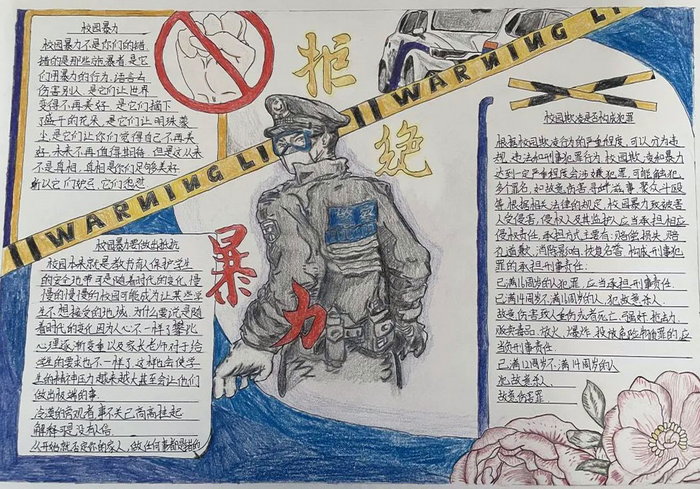 校园暴力
校园暴力不是你们的错,
错的是那些施暴者是它
们用暴力的行为,语言去
伤害别人,是它们让世界
变得不再美好,是它们摘下
了盛千的花朵,是它们让明珠蒙
尘是它们让你们觉得自己不再美
好,未来不再值得期待,但是这从来
不是真相,真相是你们足够美好
所以它们妒忌,它们
拒绝
WARNING LI
WARNING LI
暴力
校园暴力要做出抵抗
校园本来就是教书育人保护学生
的安全地带可是随着时代的变化,慢
慢的慢慢的校园可能成为让某些学
生不想接受的地域,为什么要说是随
着时代的变化因为人心不一样了攀扎
心理逐渐变重以及家长老师对于给
学生的要求也不一样了这样也会使学
生的精神压力越来越大甚至会让他们
做出极端的事.
冷漠的旁观者事不关己高高挂起
解释可是没有人信
从开始就否定你的家人,做任何事都是错的
校园欺凌是否构成犯罪
根据校园欺凌行为的严重程度,可以分为违
规,违法和刑事犯罪行为校园欺凌和暴力
达到一定严重程度会涉嫌犯罪,可能触犯,
多个罪名,如故意伤害寻衅滋事聚众斗殴
等根据相关法律的规定,校园暴力致被害
人受侵害,侵权人及其监护人应当承担相应
侵权责任,承担方式主要有:赔偿损失 赔
礼道歉,消除影响,恢复名誉构成刑事犯
罪的承担刑事责任
已满16周岁的人犯罪,应当承担刑事责任
已满14周岁不满16周岁的人,犯故意杀人,
故意伤害致人重伤或者死亡 强奸 抢劫
贩卖毒品 放火 爆炸 投放危险物质罪的,应
当负刑事责任
已满12周岁不满14周岁的人
犯故意杀人.
故意伤害罪